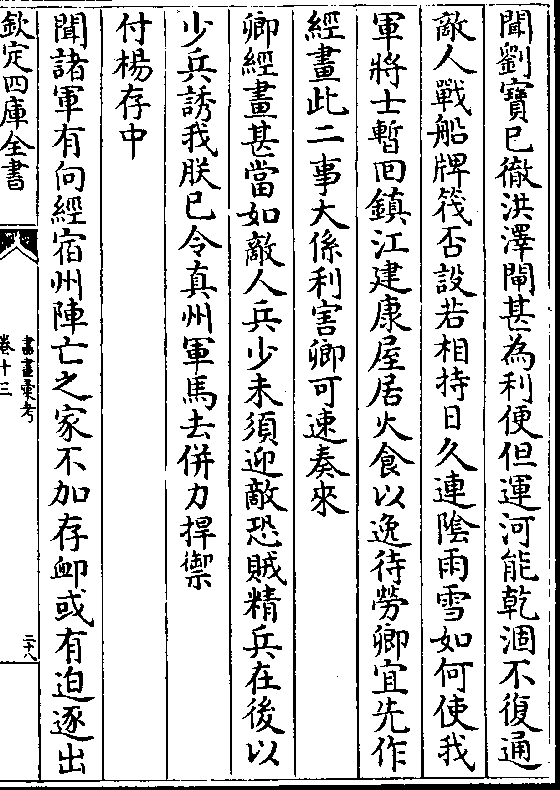 聞劉寶已徹洪澤閘甚為利便但運河能乾涸不復通
敵人戰船牌筏否設若相持日久連陰雨雪如何使我
軍將士暫回鎮江建康屋居火食以逸待勞卿宜先作
經畫此二事大係利害卿可速奏來
卿經畫甚當如敵人兵少未須迎敵恐賊精兵在後以
少兵誘我朕已令真州軍馬去併力捍禦
付楊存中
聞諸軍有向經宿州陣亡之家不加存䘏或有迫逐出
欽定四庫全書
書畫彙考
卷十三
二十八